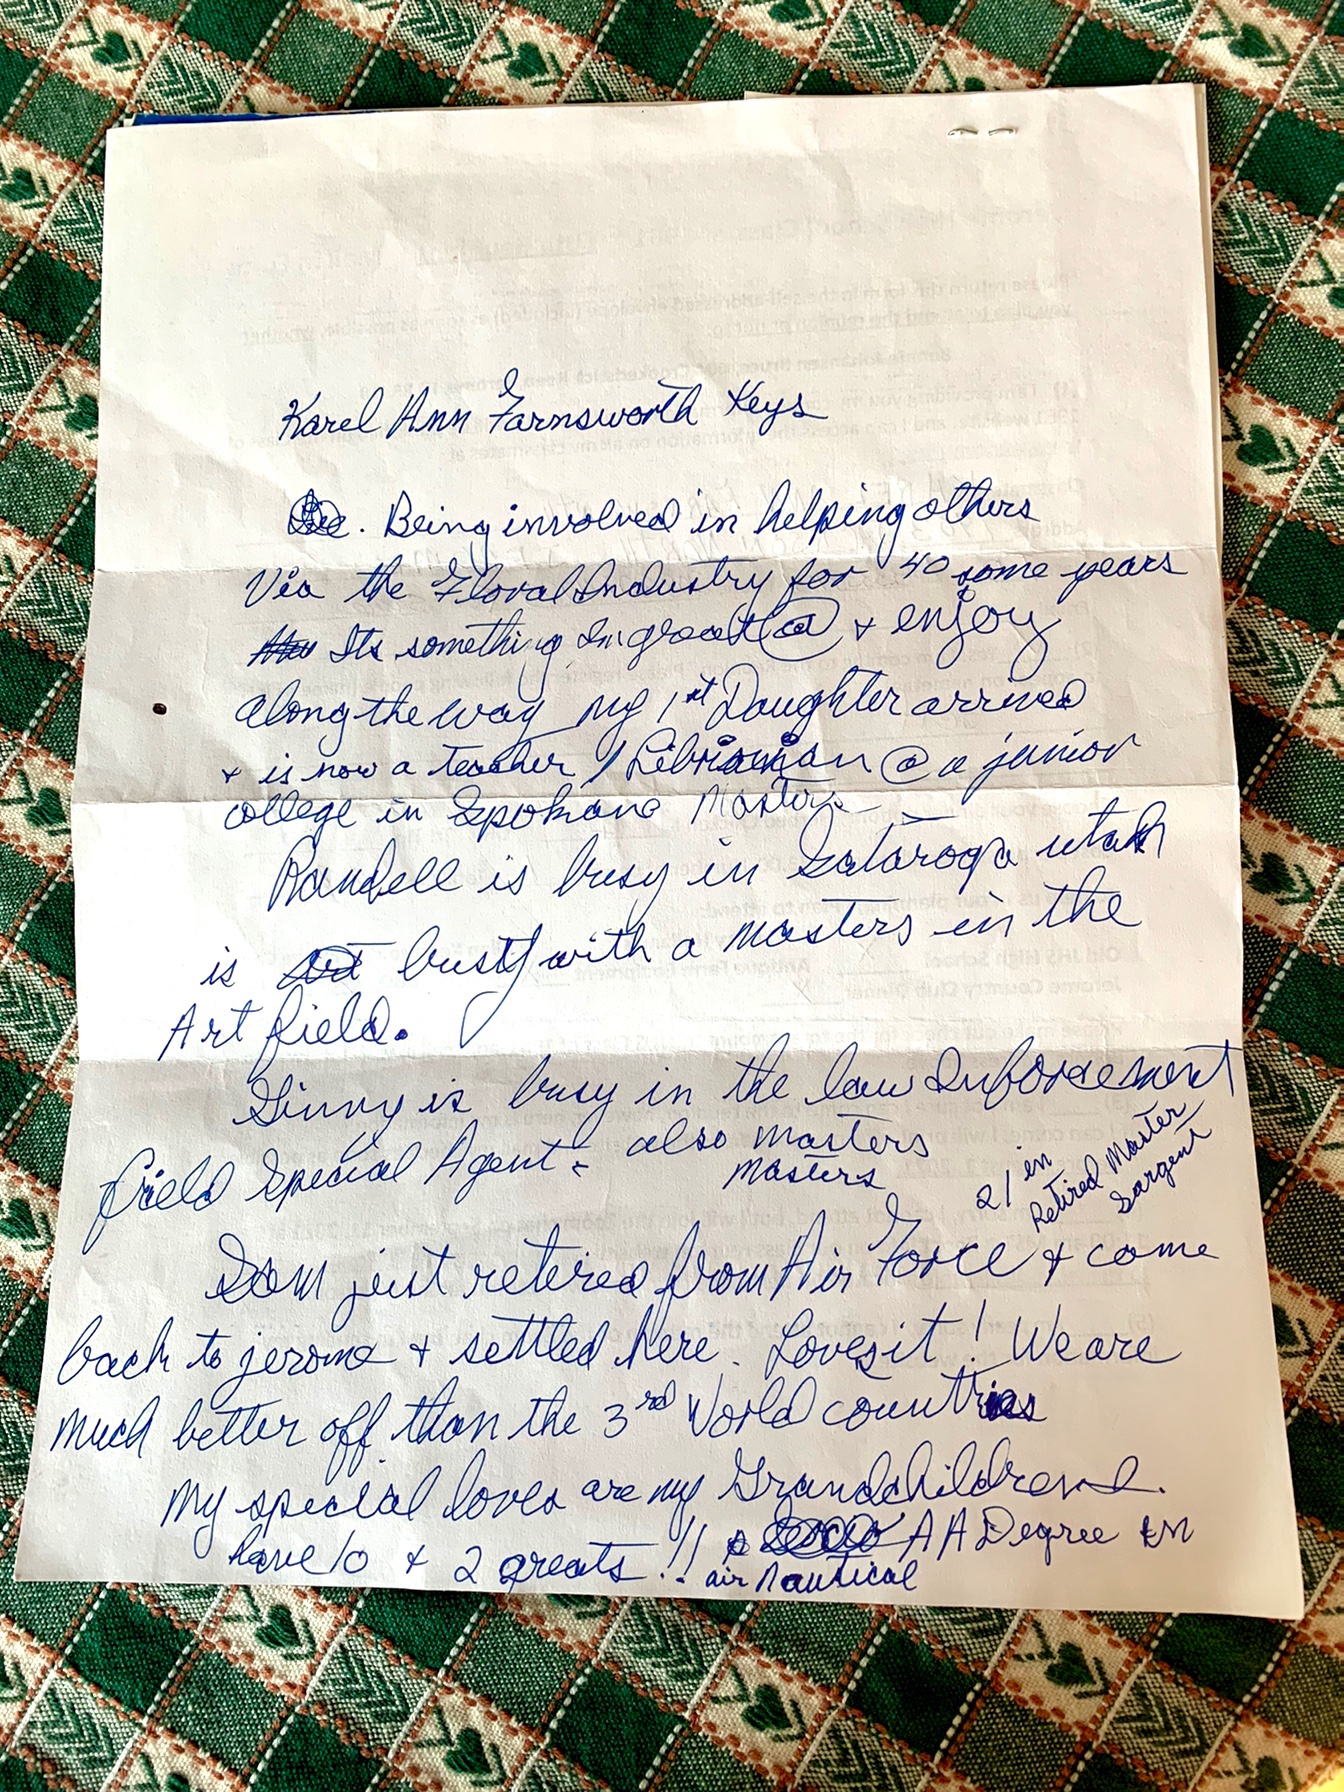 Karel Ann Farnsworth Keys
Being involved in helping others
Via the Floral Industry for 40 some years
Its something Im great @ & enjoy
along the way my 1st Daughter arrived
& is now a teacher / Librarian @ a junior
college in Spokane Masters
Randell is busy in Sataroga utah
is busy with a masters in the
Art field.
Ginny is busy in the law Inforcement
field Special Agent - also masters
masters
21 in
Retired Master
Sargent
Sam just retired from Air Force & come
back to jerome & settled here. Loves it! We are
much better off than the 3rd World countries
My special loves are my Grandchildren.
have 10 & 2 greats!! AA Degree in
air nautical